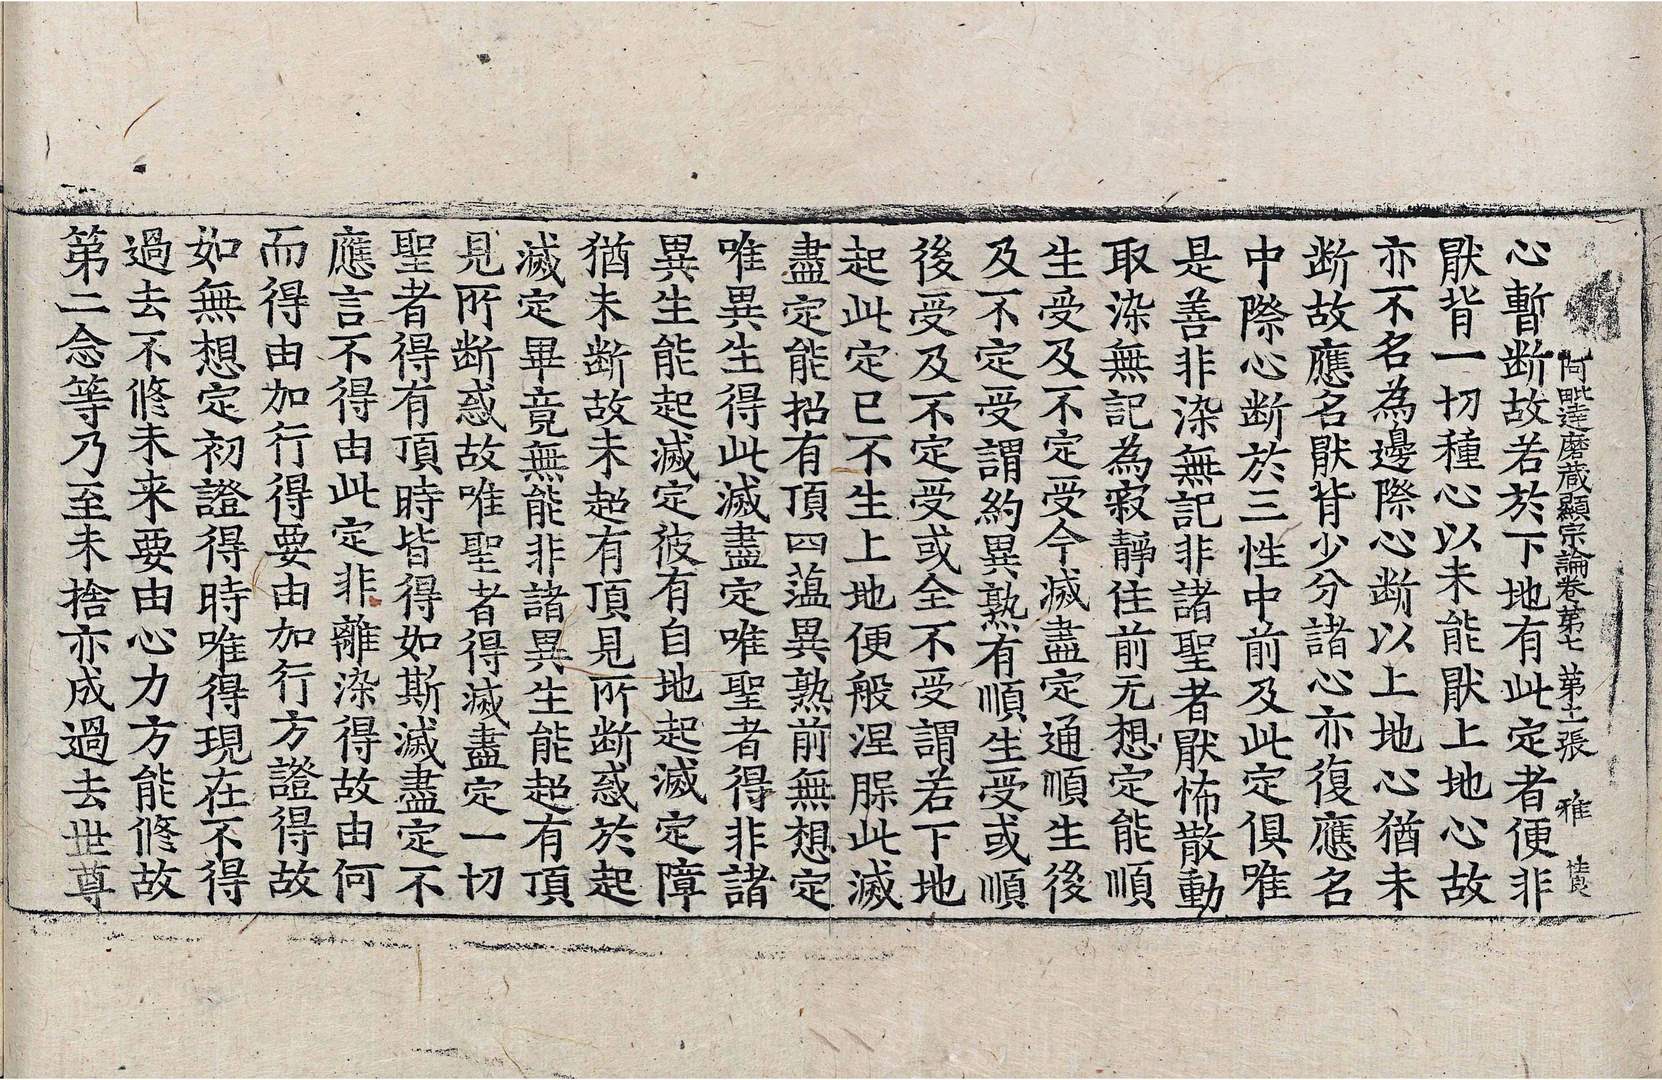 阿毗達磨藏顯宗論卷第七 第十二張 雅
心暫断故若於下地有此定者便非
猒背一切種心以未能猒上地心故
亦不名為邊際心断以上地心猶未
断故應名猒背少分諸心亦復應名
中際心断於三性中前及此定俱唯
是善非染無記非諸聖者猒怖散動
取染無記為寂靜住前无想定能順
生受及不定受今滅盡定通順生後
及不定受謂約異熟有順生受或順
後受及不定受或全不受謂若下地
起此定已不生上地便般涅脲此滅
盡定能招有頂四蕰異熟前無想定
唯異生得此滅盡定唯聖者得非諸
異生能起滅定彼有自地起滅定障
猶未断故未超有頂見所断惑於起
滅定畢竟無能非諸異生能超有頂
見所断惑故唯聖者得滅盡定一切
聖者得有頂時皆得如斯滅盡定不
應言不得由此定非離染得故由何
而得由加行得要由加行方證得故
如無想定初證得時唯得現在不得
過去不修未来要由心力方能修故
第二念等乃至未捨亦成過去世尊